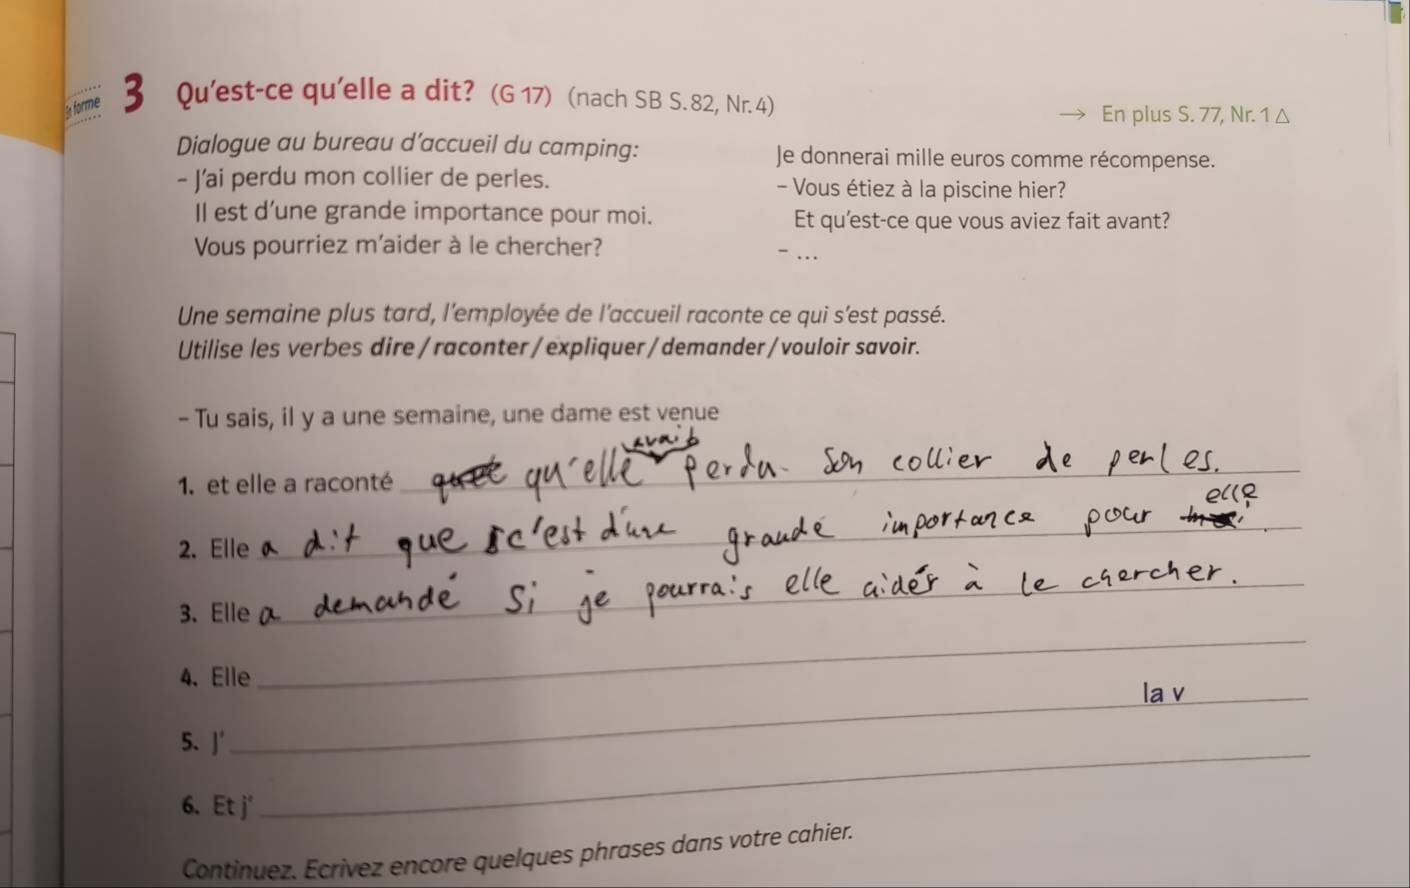 En forme
3 Qu'est-ce qu'elle a dit? (G 17) (nach SB S. 82, Nr. 4)
→ En plus S. 77, Nr. 1 △
Dialogue au bureau d'accueil du camping:
- J'ai perdu mon collier de perles.
Il est d'une grande importance pour moi.
Vous pourriez m'aider à le chercher?
Je donnerai mille euros comme récompense.
- Vous étiez à la piscine hier?
Et qu'est-ce que vous aviez fait avant?
- ...
Une semaine plus tard, l'employée de l'accueil raconte ce qui s'est passé.
Utilise les verbes dire / raconter / expliquer / demander / vouloir savoir.
- Tu sais, il y a une semaine, une dame est venue
1. et elle a raconté qu'elle avait perdu son collier de perles.
2. Elle a dit que c'est d'une grande importance pour elle.
3. Elle a demandé si je pourrais elle aider à le chercher.
4. Elle
la v
5. J'
6. Et j'
Continuez. Ecrivez encore quelques phrases dans votre cahier.